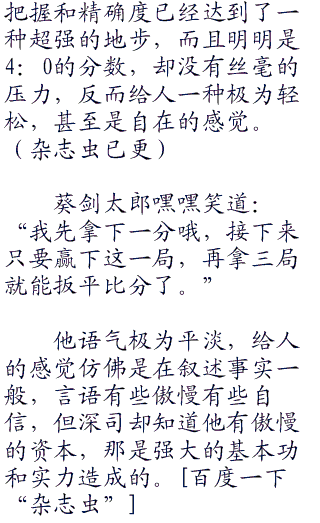 把握和精确度已经达到了一
种超强的地步，而且明明是
4：0的分数，却没有丝毫的
压力，反而给人一种极为轻
松，甚至是自在的感觉。
（杂志虫已更）
葵剑太郎嘿嘿笑道：
“我先拿下一分哦，接下来
只要赢下这一局，再拿三局
就能扳平比分了。”
他语气极为平淡，给人
的感觉仿佛是在叙述事实一
般，言语有些傲慢有些自
信，但深司却知道他有傲慢
的资本，那是强大的基本功
和实力造成的。[百度一下
“杂志虫”]